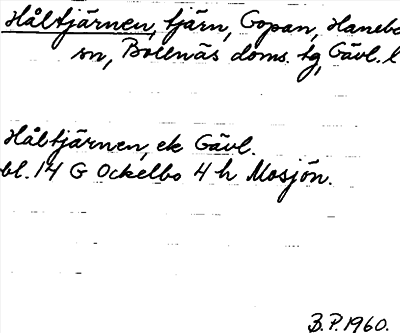 Håltjärnen, tjärn, Gopan, Hanebo
sn, Bollnäs doms. tg, Gävl. l
Håltjärnen, ek Gävl.
bl. 14 G Ockelbo 4 h Mosjön.
B.P. 1960.